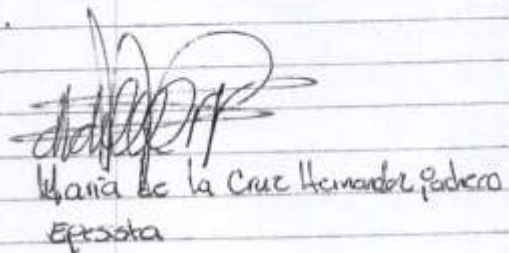 María de la Cruz Hernandez Pacheco
Epesista